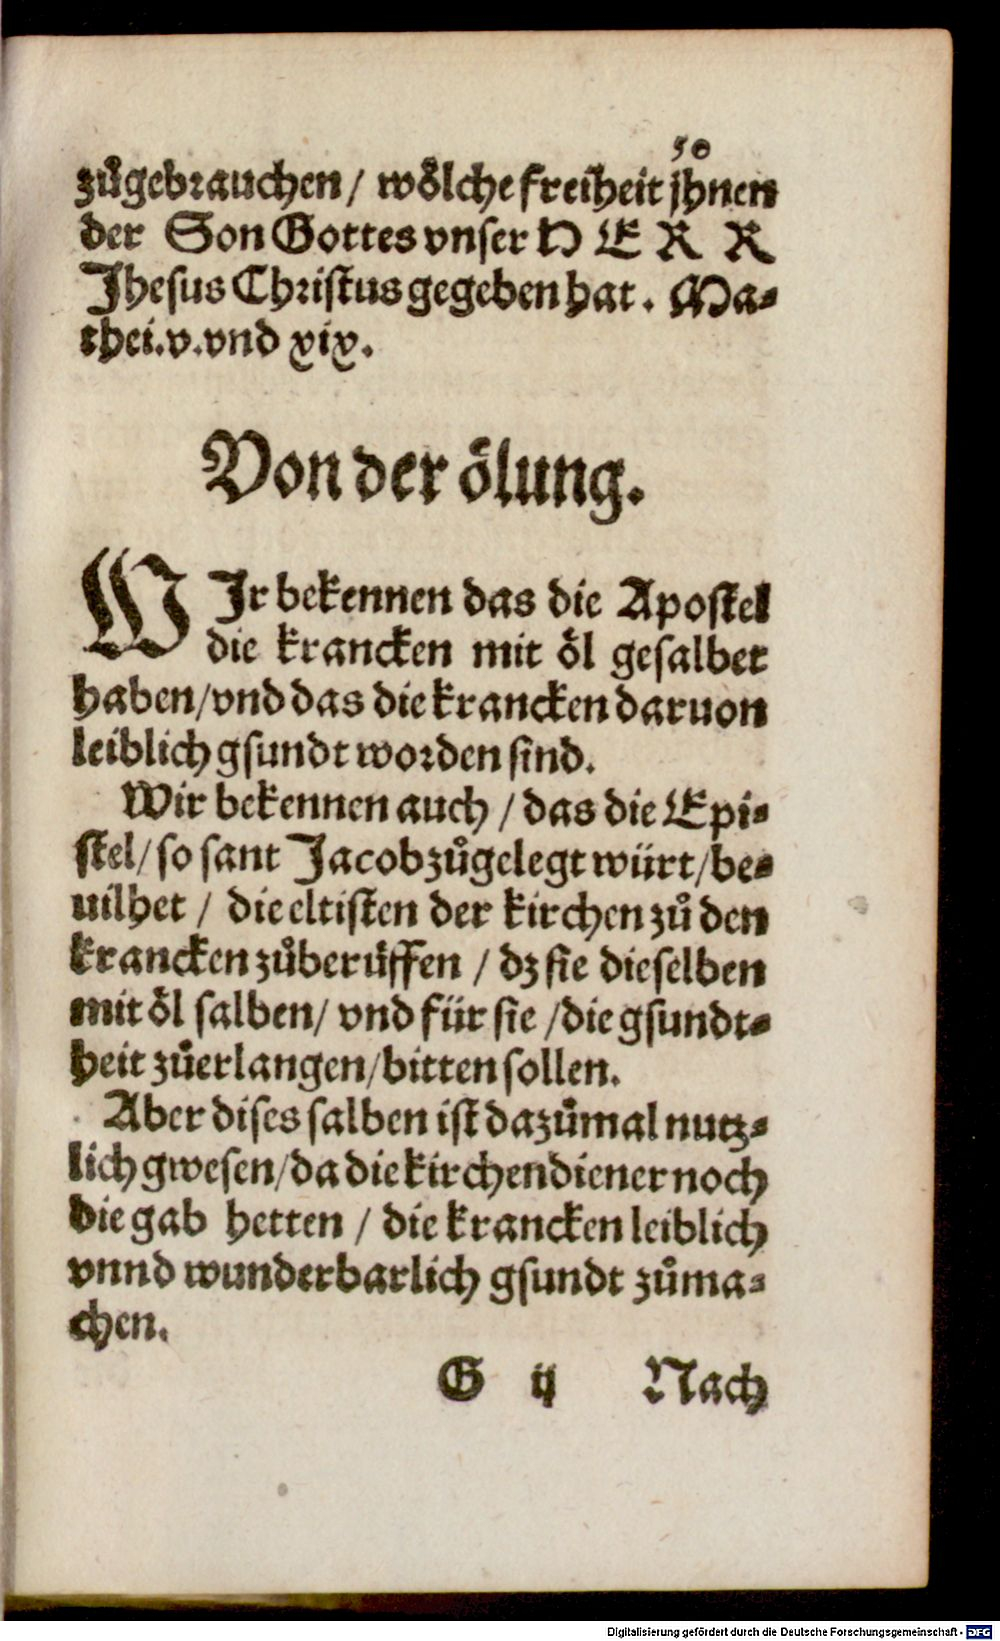 50
zůgebrauchen / wölche freiheit jhnen
der Son Gottes vnser H E R R
Jhesus Christus gegeben hat. Ma-
thei.v.vnd xix.
Von der ölung.
WIr bekennen das die Apostel
die krancken mit öl gesalbet
haben/vnd das die krancken daruon
leiblich gsundt worden sind.
Wir bekennen auch / das die Epi-
stel/ so sant Jacob zůgelegt würt/be-
uilhet / die eltisten der kirchen zů den
krancken zůberüffen / dz sie dieselben
mit öl salben/ vnd für sie /die gsundt-
heit zůerlangen/bitten sollen.
Aber dises salben ist dazůmal nutz-
lich gwesen/da die kirchendiener noch
die gab hetten / die krancken leiblich
vnnd wunderbarlich gsundt zůma-
chen.
G ij Nach
Digitalisierung gefördert durch die Deutsche Forschungsgemeinschaft - DFG